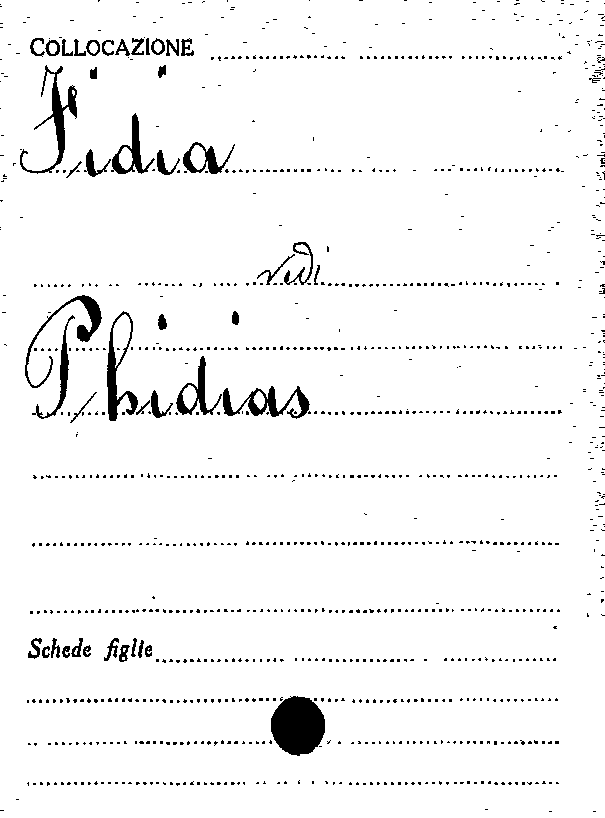 COLLOCAZIONE
Fidia
vedi
Phidias
Schede figlie